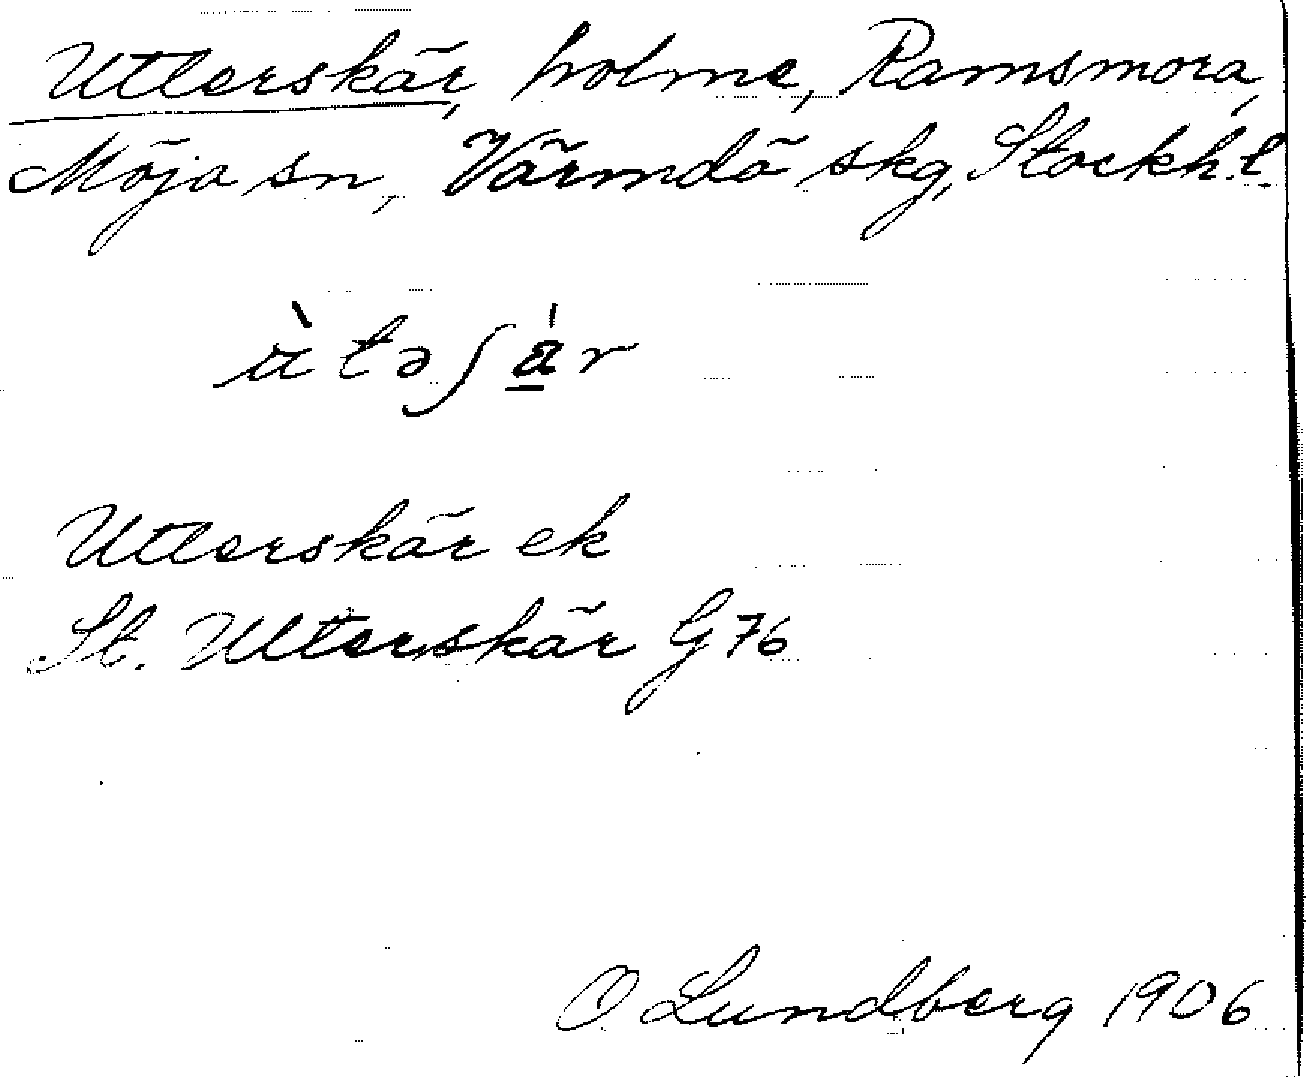 Utterskär, holme, Ramsmora,
Möja sn, Värmdö skg, Stockh. l.
ùtəʃär
Utterskär ek
St. Utterskär G 76
O Lundberg 1906